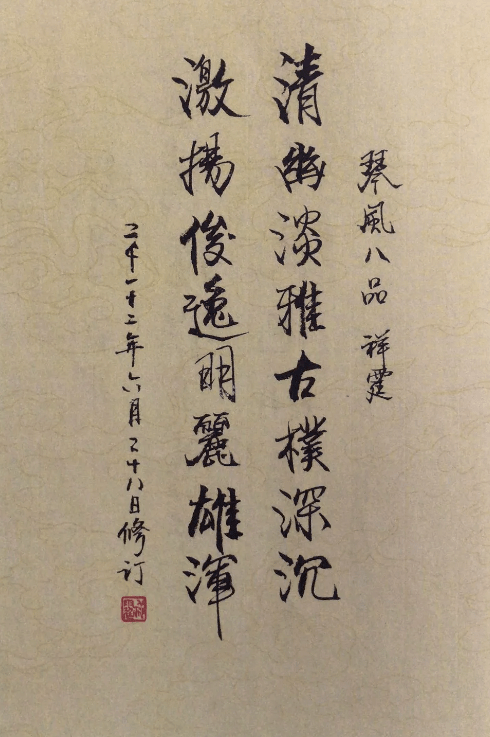 琴风八品 祥霆
清幽淡雅古樸深沉
激揚俊逸明麗雄渾
二千〇十二年六月二十八日修订